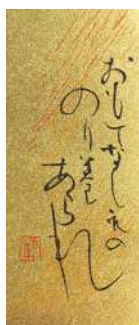 おもてなしの
のり巻
あられ